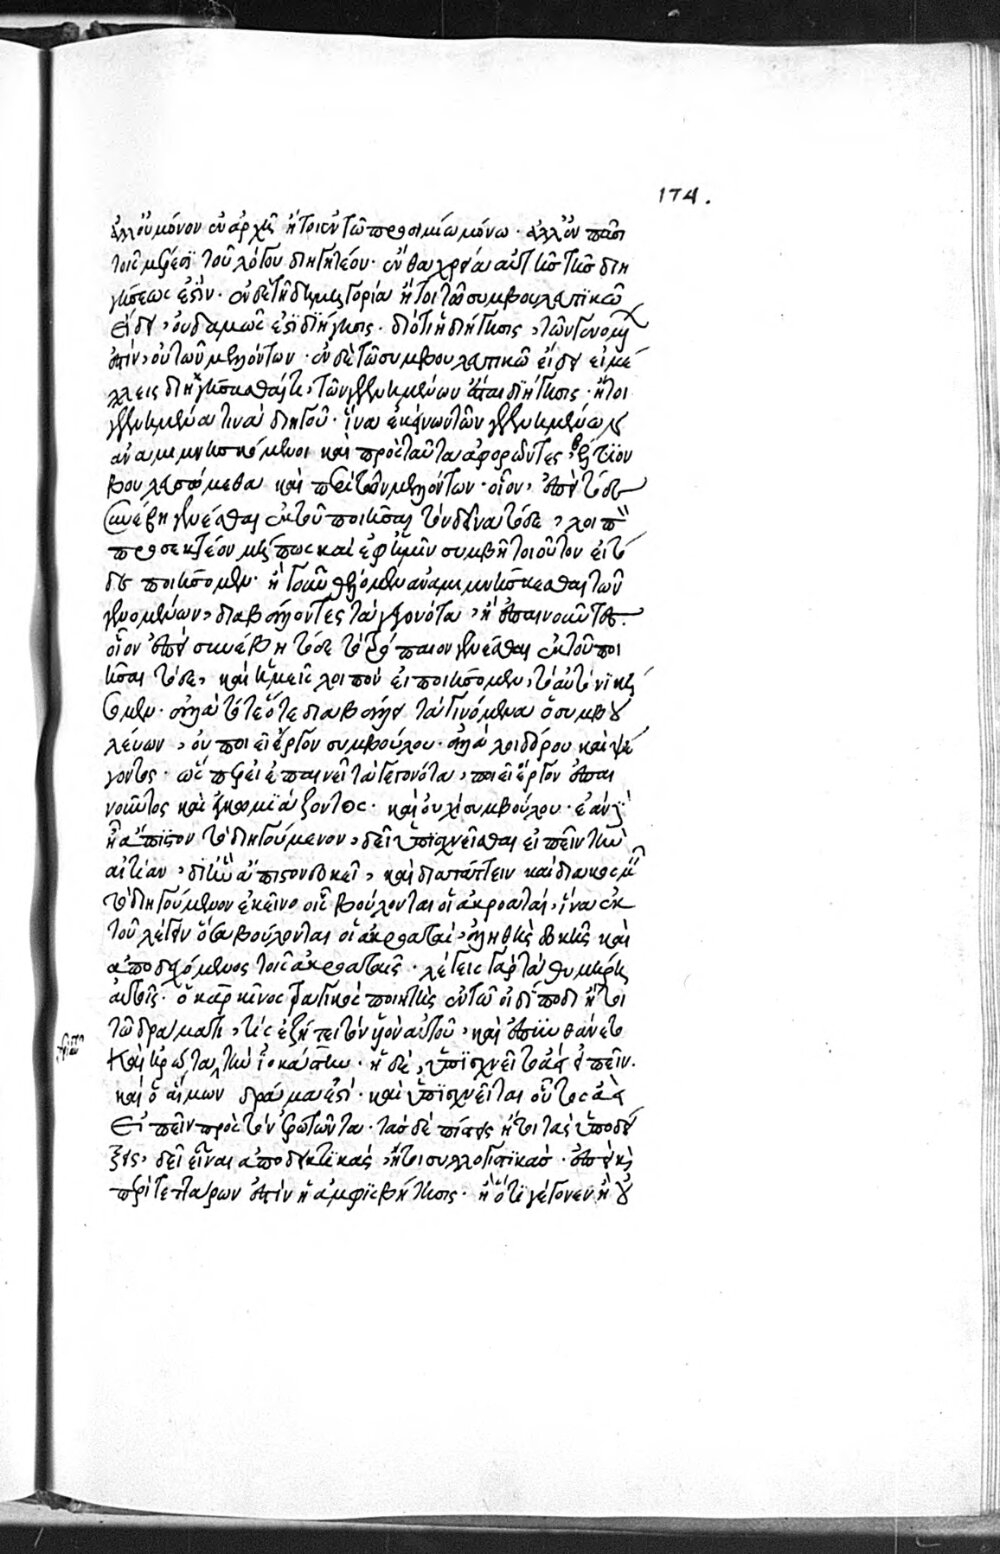 174.
ἀλλ' οὐ μόνον ἐν ἀρχῇ ἤτοι ἐν τῷ προοιμίῳ μόνῳ · ἀλλ' ἐν πᾶσι
τοῖς μέρεσι τοῦ λόγου διηγητέον · ἔνθα χρεία ἐστὶ τῆς διη
γήσεώς ἐστιν · ἐν δὲ τῇ δημηγορίᾳ ἤτοι τῷ συμβουλευτικῷ
εἴδει, οὐδαμῶς ἐστι διήγησις · διότι ἡ διήγησις, τῶν γενομέ
ἐστίν, οὐ τῶν μελλόντων · ἐν δὲ τῷ συμβουλευτικῷ εἴδει εἰ μέ
λλεις διηγήσασθαί τι, τῶν γεγενημένων ἔσται διήγησις · ἤτοι
γεγενημένα τινὰ διηγοῦ · ἵνα ἐκείνων τῶν γεγενημένων
ἀναμιμνησκόμενοι καὶ πρὸς ταῦτα ἀφορῶντες βέλτιον
βουλευσόμεθα καὶ περὶ τῶν μελλόντων · οἷον, ὅτι τόδε
συνέβη γενέσθαι ἐκ τοῦ ποιῆσαι τὸν δεῖνα τόδε, λοιπὸν
προσεκτέον μή πως καὶ ἐφ' ἡμῖν συμβῇ τοιοῦτον εἰ τό
δε ποιήσομεν · ἢ γοῦν θέλομεν ἀναμιμνήσκεσθαι τῶν
γενομένων, διαβάλλοντες τὰ γεγονότα, ἢ ἐπαινοῦντες.
οἷον ὅτι συνέβη τόδε τὸ τρόπαιον γενέσθαι ἐκ τοῦ ποι
ῆσαι τόδε, καὶ ἡμεῖς λοιπὸν εἰ ποιήσομεν, τὸ αὐτὸ νικη
σομεν · ἀλλὰ τότε ὅτε διαβάλλει τὰ γινόμενα ὁ συμβου
λεύων, οὐ ποιεῖ ἔργον συμβούλου · ἀλλὰ λοιδόρου καὶ ψέ
γοντος · ὡσπερεὶ ἐπαινεῖ τὰ γεγονότα, ποιεῖ ἔργον ἐπαι
νοῦντος καὶ ἐγκωμιάζοντος · καὶ οὐχὶ συμβούλου · ἐὰν δὲ
ᾖ ἄπιστον τὸ διηγούμενον, δεῖ ὑπισχνεῖσθαι εἰπεῖν τὴν
αἰτίαν, δι' ἣν ἄπιστον δοκεῖ, καὶ διατάττειν καὶ διακοσμεῖν
τὸ διηγούμενον ἐκεῖνο οἷς βούλονται οἱ ἀκροαταί, ἵνα ἐκ
τοῦ λέγειν ὅσα βούλονται οἱ ἀκροαταὶ, ἀληθὴς δοκῇς καὶ
ἀποδεχόμενος τοῖς ἀκροαταῖς · λέγεις γὰρ τὰ θυμήρη
αὐτοῖς · ὁ καρκῖνος τραγικὸς ποιητὴς ἐν τῷ οἰδίποδι ἤτοι
τῷ δράματι, τὶς ἐζήτει τὸν υἱὸν αὐτοῦ, καὶ ὅπου θάνετο
καὶ ἠρώτα τὴν ἰοκάστην · ἡ δὲ, ὑπισχνεῖτο ἀεὶ εἰπεῖν.
καὶ ὁ αἵμων δρᾶμα ἐστὶ · καὶ ὑπισχνεῖται οὗτος ἀεὶ
εἰπεῖν πρὸς τὸν ἐρωτῶντα · τὰς δὲ πίστεις ἤτοι τὰς ὑποδεί
ξεις, δεῖ εἶναι ἀποδεικτικὰς, ἤτοι συλλογιστικάς · ἐπεὶ καὶ
περὶ τεττάρων ἐστὶν ἡ ἀμφισβήτησις · ἢ ὅτι γέγονεν ἢ οὐ